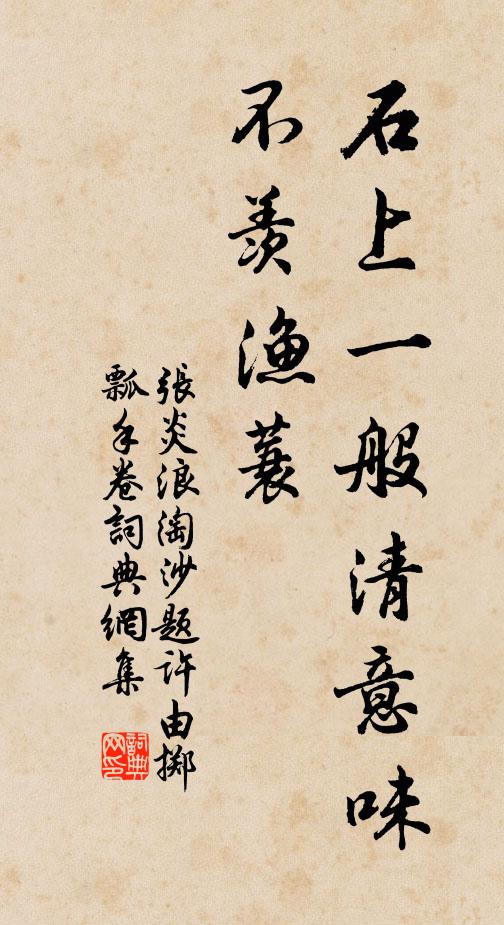 石上一般清意味
不羨漁蓑
張炎浪淘沙題许由擲
瓢手卷詞典網集
詞典
网印